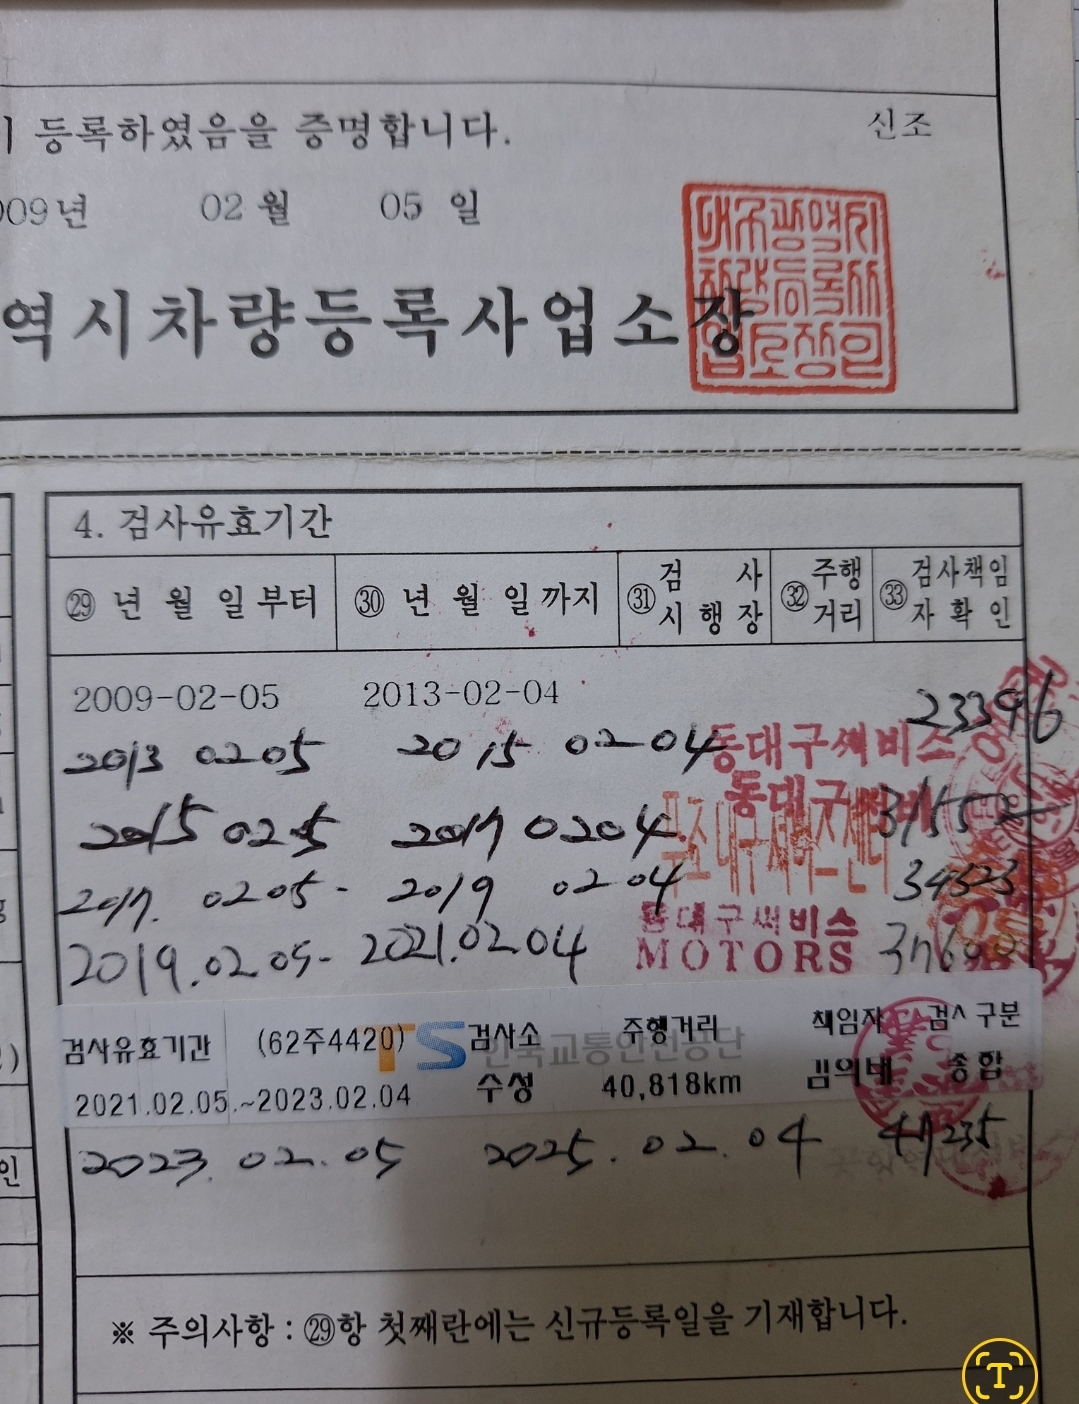 등록하였음을 증명합니다. 신조
09년 02 월 05 일
역시차량등록사업소장
4. 검사유효기간
㉙ 년 월 일 부터 ㉚ 년 월 일 까지 ㉛ 검사시행장 ㉜ 주행거리 ㉝ 검사책임자 확인
2009-02-05 2013-02-04 233916
2013 02 05 2015 02-04 동대구써비스
동대구
2015 02 5 2017 02 04
2017. 02 05 - 2019 02 04 34523
동대구써비스
2019.02 05- 2021.02 04 MOTORS
검사유효기간 (62주4420) TS 한국교통안전공단 검사소 주행거리 책임자 구분
2021.02.05.~2023.02.04 수성 40,818km 종합
2023. 02. 05 2025. 02. 04 47235
인
※ 주의사항 : ㉙항 첫째란에는 신규등록일을 기재합니다.